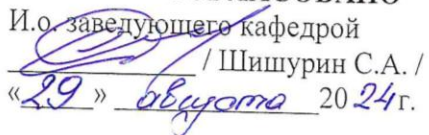 И.о. заведующего кафедрой
/ Шишурин С.А. /
«29» августа 2024г.